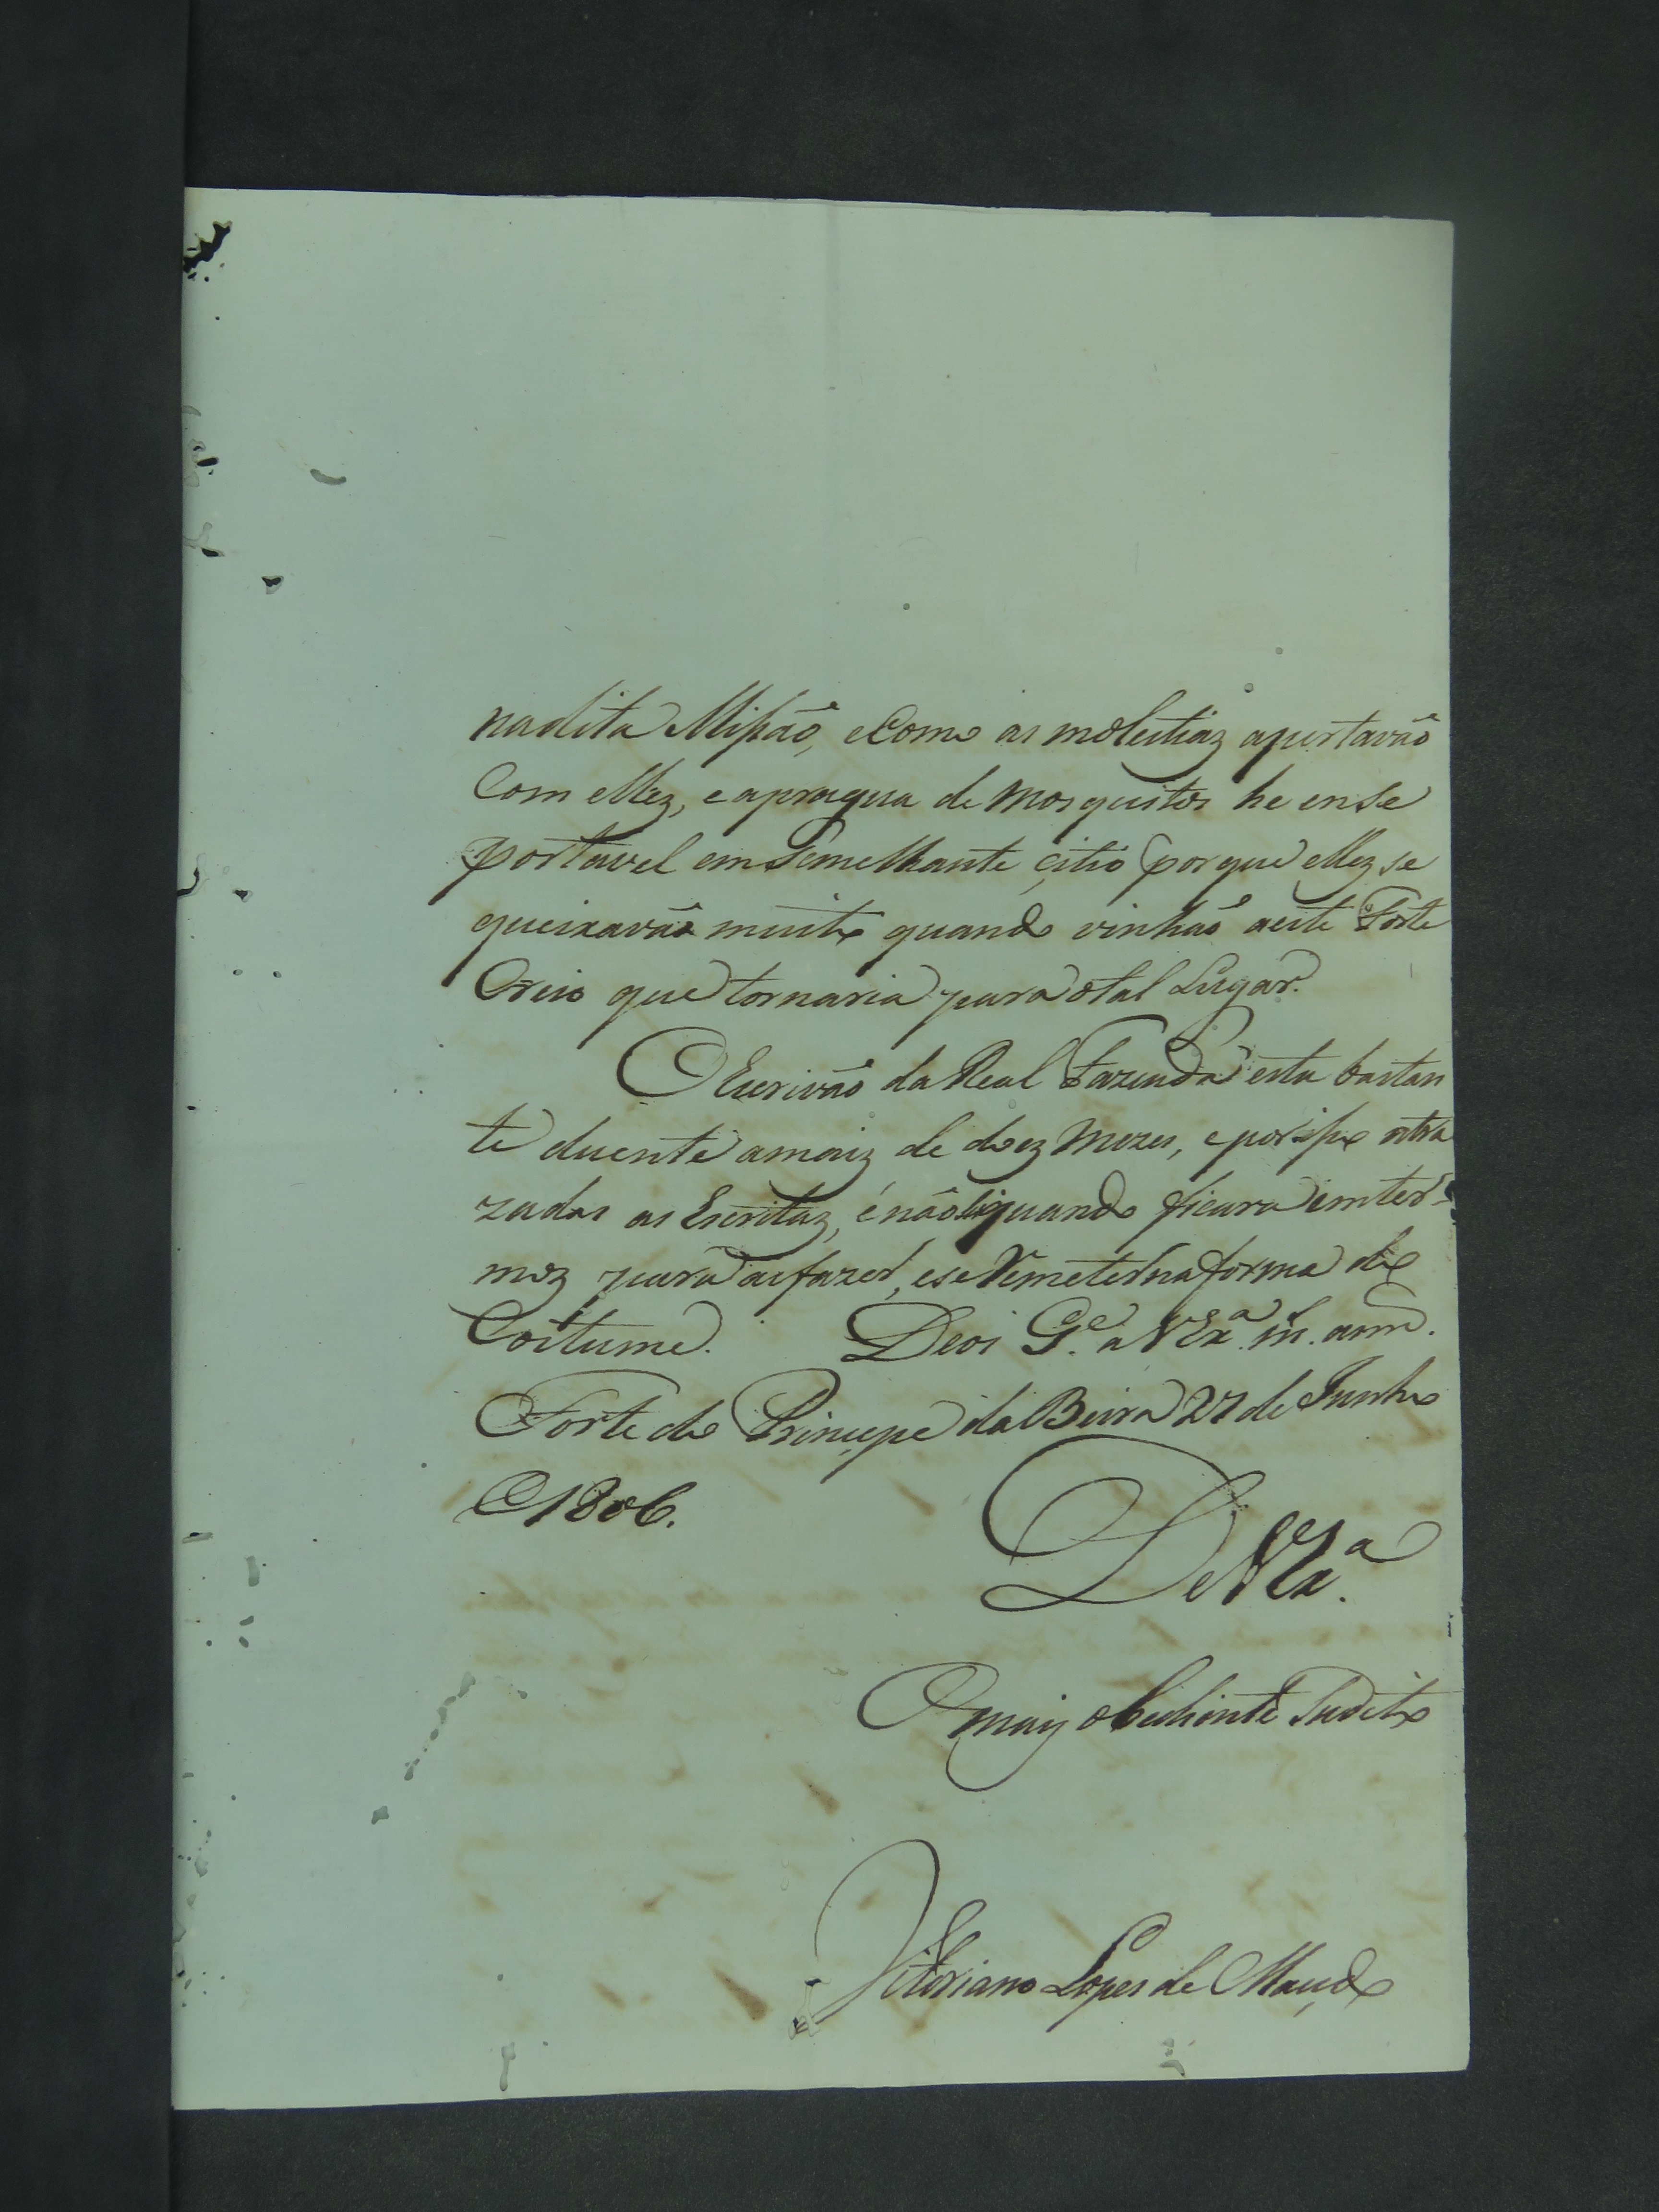 nadita Missão, eComo as molestiaz apertavão
Com ellez, e apragua de mosquitos he ense
portavel em Semelhante çitio porque ellez se
queixavão muito quando vinhão aeste Forte
Creio que tornaria para otal Lugar.
O Escrivão da Real Fazenda esta bastan
te duente amaiz de doiz Mezes, eporisso atra
zadas as Escritaz, e não sei quando ficara emter-
moz para asfazer, ese Remeter na forma do
Costume. Deos G.e a V Ex.a m. ann.
Forte do Principe da Beira 27 de Junho
de 1806.
De V Ex.a
O maiz obediente Sudito
Vitoriano Lopes de Maçedo